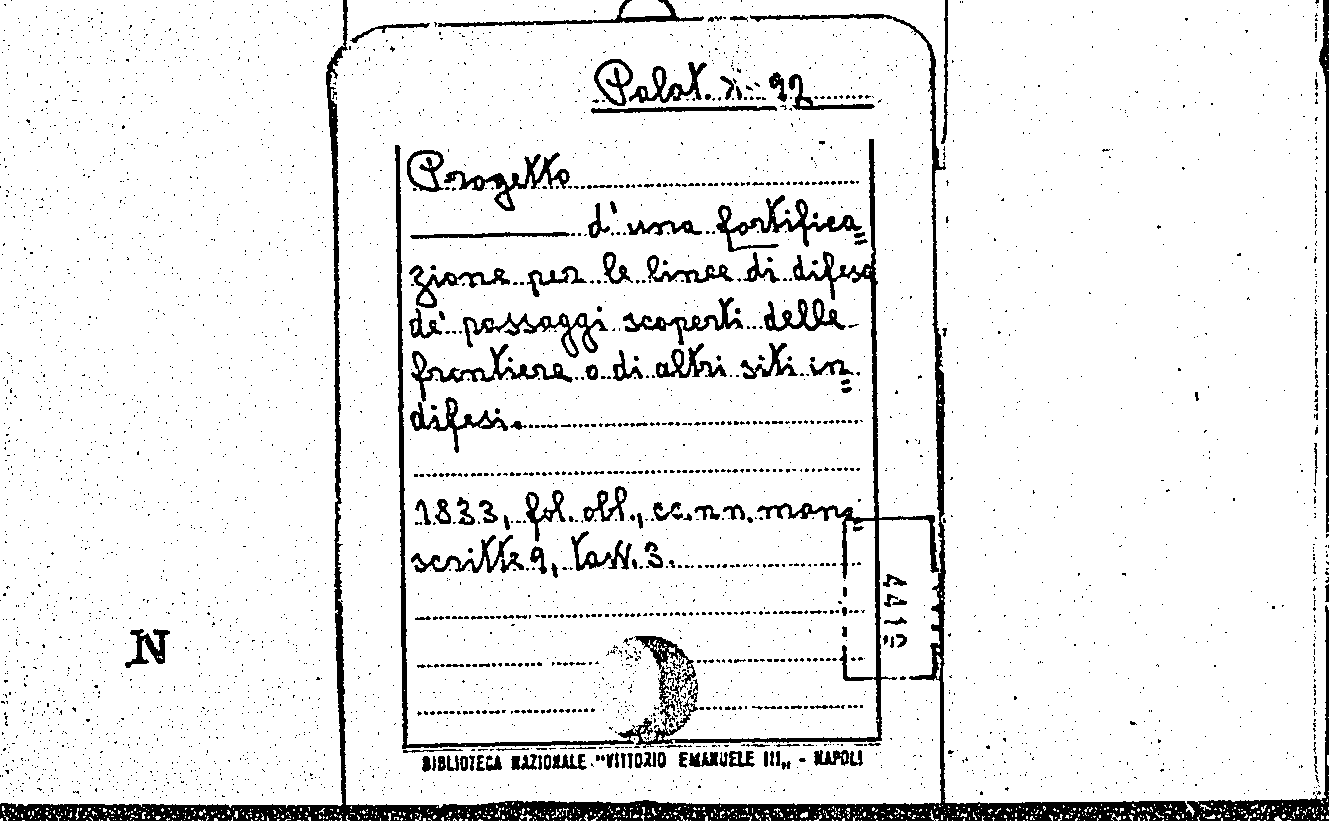 Palat. 92
Progetto
d'una fortifica=
zione per le linee di difesa
de' passaggi scoperti delle
frontiere o di altri siti in=
difesi.
1833, fol. obl., cc. n n. mano=
scritte 9, tavv. 3.
N
BIBLIOTECA NAZIONALE "VITTORIO EMANUELE III„ - NAPOLI